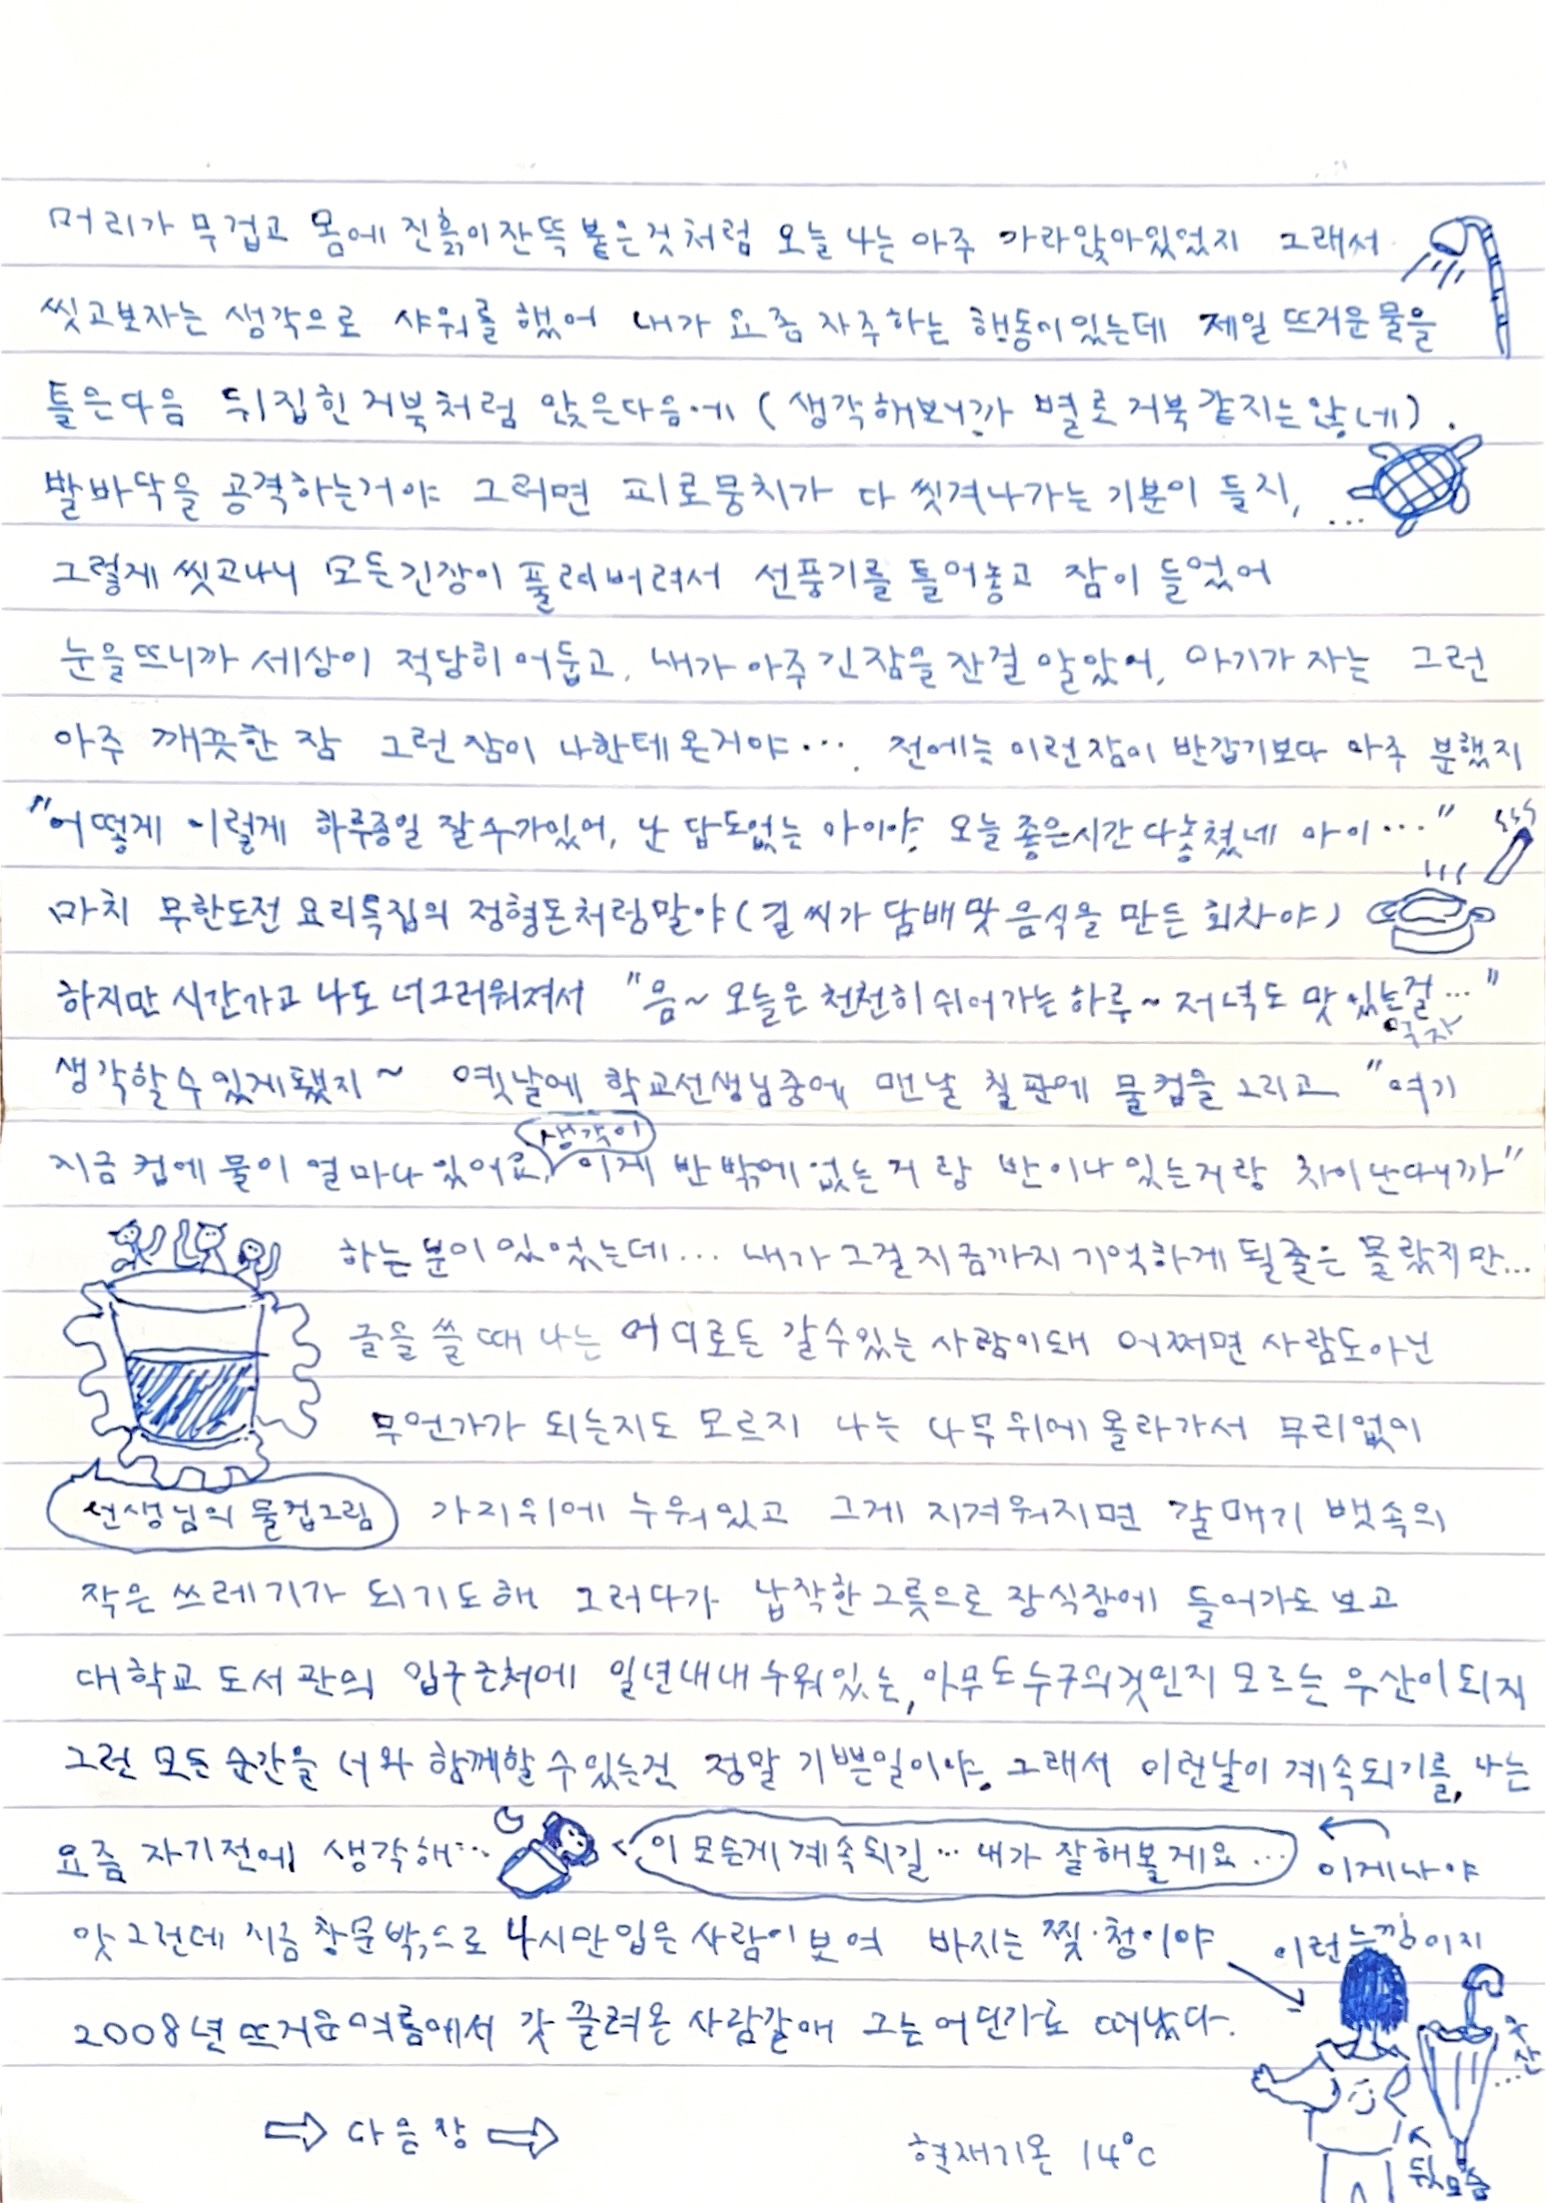 머리가 무겁고 몸에 진흙이잔뜩 붙은것처럼 오늘 나는 아주 가라앉아있었지 그래서
씻고보자는 생각으로 샤워를 했어 내가 요즘 자주하는 행동이있는데 제일 뜨거운 물을
틀은다음 뒤집힌거북처럼 앉은다음에 (생각해보니까 별로 거북같지는않네).
발바닥을 공격하는거야 그러면 피로뭉치가 다 씻겨나가는 기분이 들지, ...
그렇게 씻고나니 모든긴장이 풀려버려서 선풍기를 틀어놓고 잠이 들었어
눈을뜨니까 세상이 적당히 어둡고, 내가 아주 긴잠을 잔걸 알았어, 아기가 자는 그런
아주 깨끗한 잠 그런잠이 나한테 온거야.... 전에는 이런잠이 반갑기보다 아주 분했지
"어떻게 이렇게 하루종일 잘수가있어, 난 답도없는 아이야, 오늘 좋은시간 다놓쳤네 아이..."
마치 무한도전 요리특집의 정형돈처럼말야 (길씨가 담배맛 음식을 만든 회차야)
하지만 시간가고 나도 너그러워져서 "음~ 오늘은 천천히 쉬어가는 하루~ 저녁도 맛있는걸..."
먹자
생각할수있게됐지~ 옛날에 학교선생님중에 맨날 칠판에 물컵을 그리고 "여기
생각이
지금 컵에 물이 얼마나 있어요, 이게 반밖에없는거랑 반이나있는거랑 차이난다니까"
하는분이 있었는데... 내가 그걸지금까지 기억하게 될줄은 몰랐지만...
글을 쓸때 나는 어디로든 갈수있는 사람이돼 어쩌면 사람도아닌
무언가가 되는지도 모르지 나는 나무위에올라가서 무리없이
선생님의 물컵그림
가지위에 누워있고 그게 지겨워지면 갈매기 뱃속의
작은 쓰레기가 되기도해 그러다가 납작한그릇으로 장식장에 들어가도 보고
대학교 도서관의 입구근처에 일년내내 누워있는, 아무도누구의것인지 모르는 우산이되지
그런 모든 순간을 너와 함께할 수있는건 정말 기쁜일이야. 그래서 이런날이 계속되기를, 나는
요즘 자기전에 생각해...
이 모든게 계속되길... 내가 잘해볼게요...
이게나야
앗 그런데 지금 창문밖으로 나시만입은 사람이보여 바지는 찢·청이야
이런느낌이지
2008년 뜨거운여름에서 갓 끌려온 사람같애 그는 어딘가로 떠났다.
우산
...
뒷모습
⇨ 다음장 ⇨
현재기온 14°C